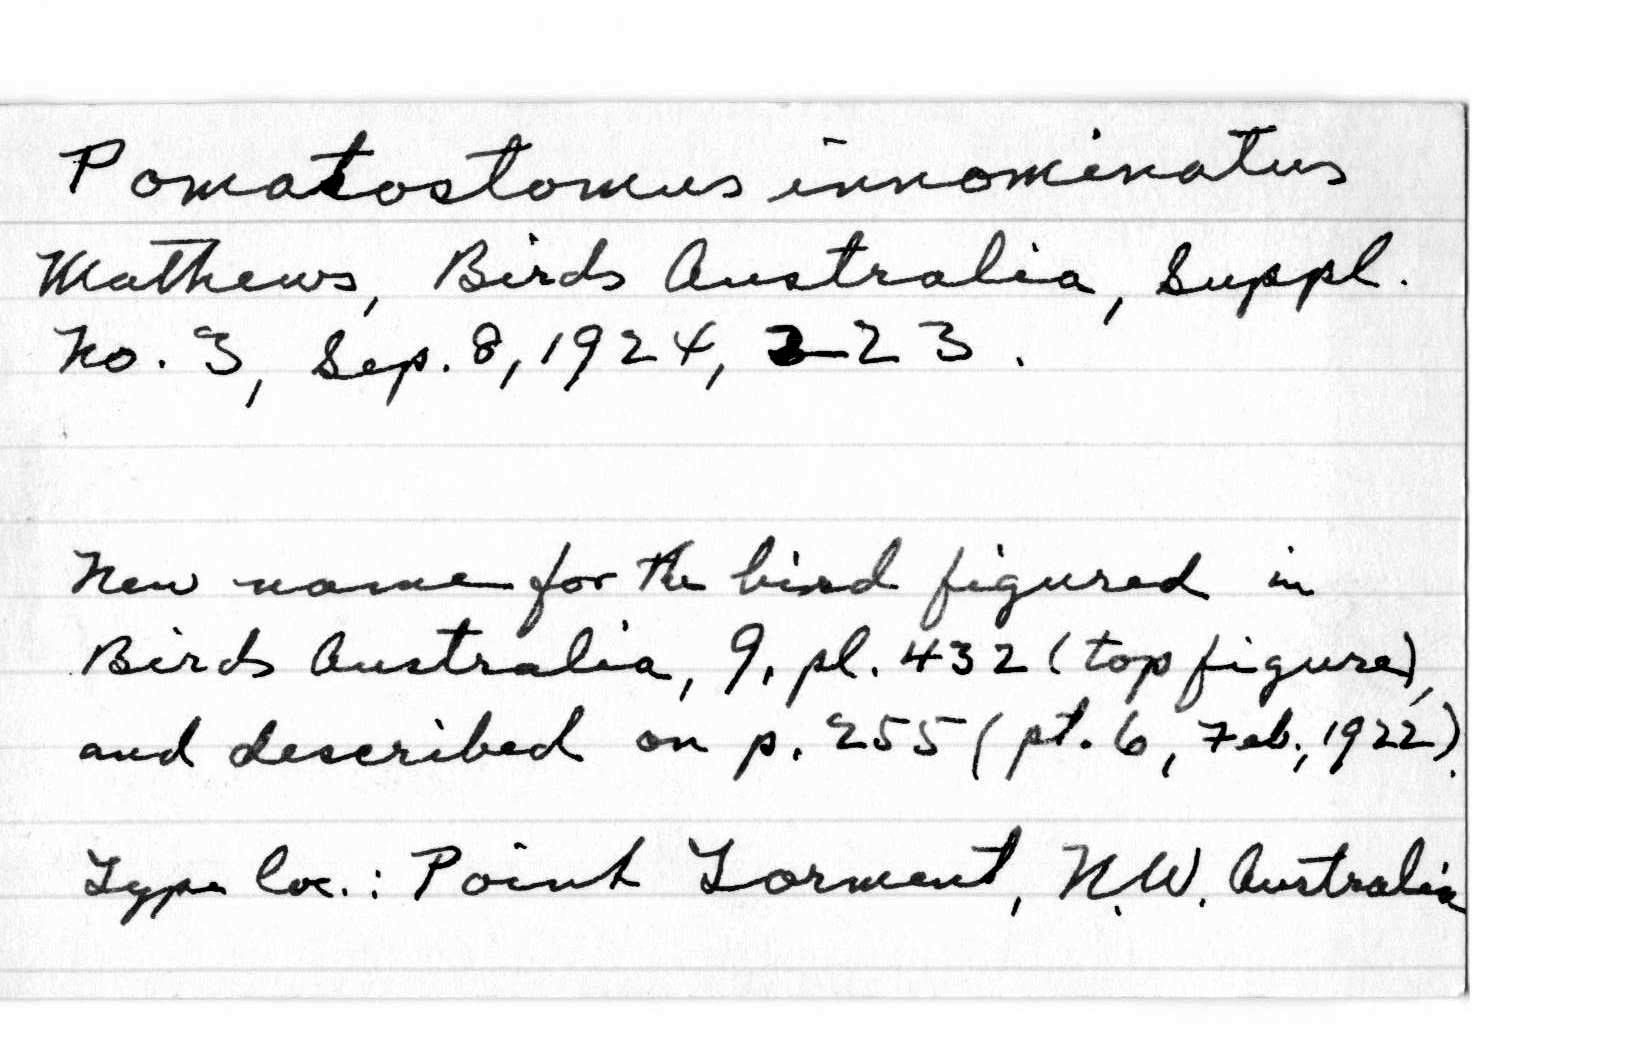 Pomatostomus innominatus
Mathews, Birds Australia, Suppl.
No. 3, Sep. 8, 1924, 223.
New name for the bird figured in
Birds Australia, 9, pl. 432 (top figure),
and described on p. 255 (pt. 6, Feb., 1922).
Type loc.: Point Torment, N.W. Australia